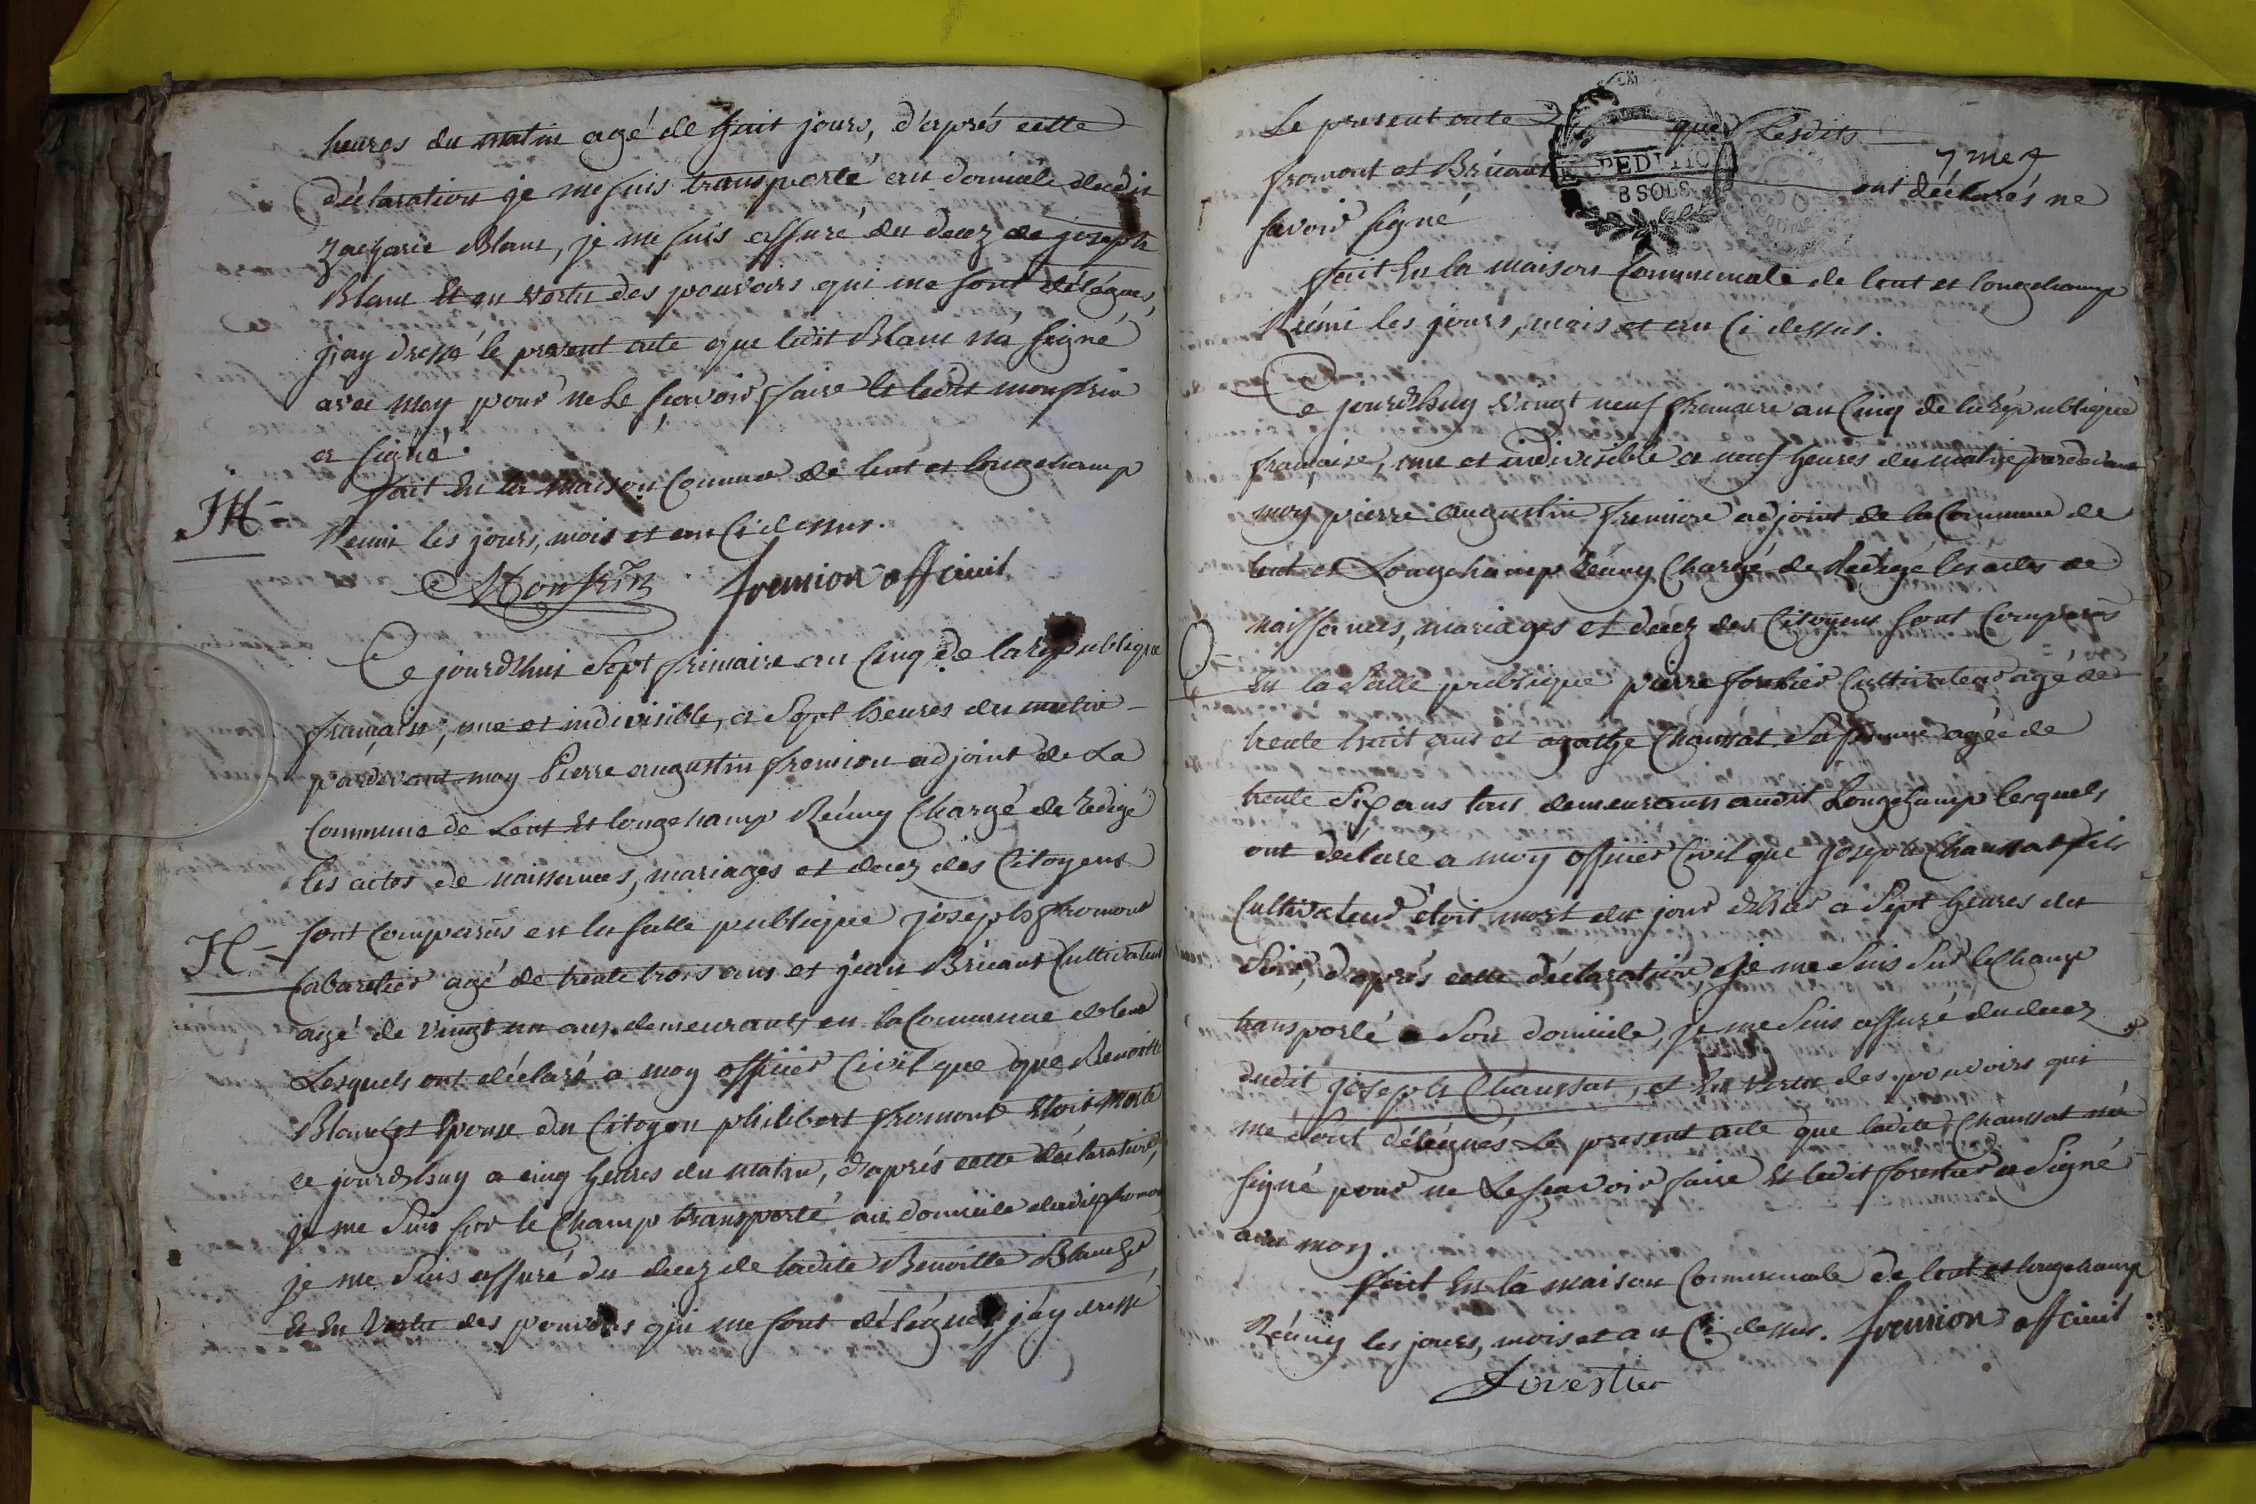 heures du matin agé de huit jours, d'après cette
déclaration je me suis transporté au domicile dudit
Zacharie Blanc, je me suis assuré du decez de joseph
Blanc Et en vertu des pouvoirs qui me sont délégués,
j'ay dressé le present acte que ledit Blanc n'a signé
avec moy pour ne Le sçavoir faire Et ledit monfrin
a signé.
fait En la maison Commune de lent et longchamp
Reuni les jours, mois et an Ci dessus.
Monfrin fremion off civil
Ce jourd'hui Sept frimaire an Cinq de la republique
française, une et indivisible, a Sept heures du matin
pardevant moy Pierre augustin fremion adjoint de La
Commune de Lent Et longchamp Réuny Chargé de Redigé
les actes de naissances, mariages et decez des Citoyens
H
sont Comparus en la salle publique joseph fromont
Cabaretier agé de trente trois ans et jean Bricant Cultivateur
agé de vingt un ans, demeurants en la Commune de lent
Lesquels ont déclaré a moy officier Civil que que Benoitte
Blanc Epouse du Citoyen philibert fromont Etoit Morte
ce jourdhuy a cinq heures du matin, d'après cette déclaration,
je me Suis sur le Champ transporté au domicile dudit fromont
je me Suis assuré du decez de ladite Benoitte
Et En Vertu des pouvoirs qui me sont délégués, j'ay dressé
Le present acte que Lesdits
7 me
fromont et Bricant ont déclarés ne
EXPEDITION
8 SOLS
savoir signé
fait En la maison Communale de lent et longchamp
Réuni les jours, mois et an Ci dessus.
Ce jourdhuy vingt neuf frimaire an Cinq de la République
française, une et indivisible a neuf heures du matin pardevant
moy pierre augustin fremion adjoint de la Commune de
lent et Longchamp Réuny Chargé de Redigé les actes de
naissances, mariages et decez des Citoyens sont Comparus
En la Salle publique pierre forestier Cultivateur agé de
trente huit ans et agathe Chaussat Sa femme agée de
trente Six ans tous demeurans audit Longchamp lesquels
ont déclaré a moy officier Civil que joseph Chaussat fils
Cultivateur étoit mort du jour d'hier a Sept heures du
Soir, d'après cette déclaration, je me Suis Sur le Champ
transporté a Son domicile, je me Suis assuré du decez
dudit joseph Chaussat, et En vertu des pouvoirs qui
me sont délégués Le present acte que ladite Chaussat n'a
signé pour ne Le sçavoir faire Et ledit forestier a Signé
avec moy.
fait En la maison Communale de lent et longchamp
Réuny les jours, mois et an Ci dessus. fremion off civil
forestier